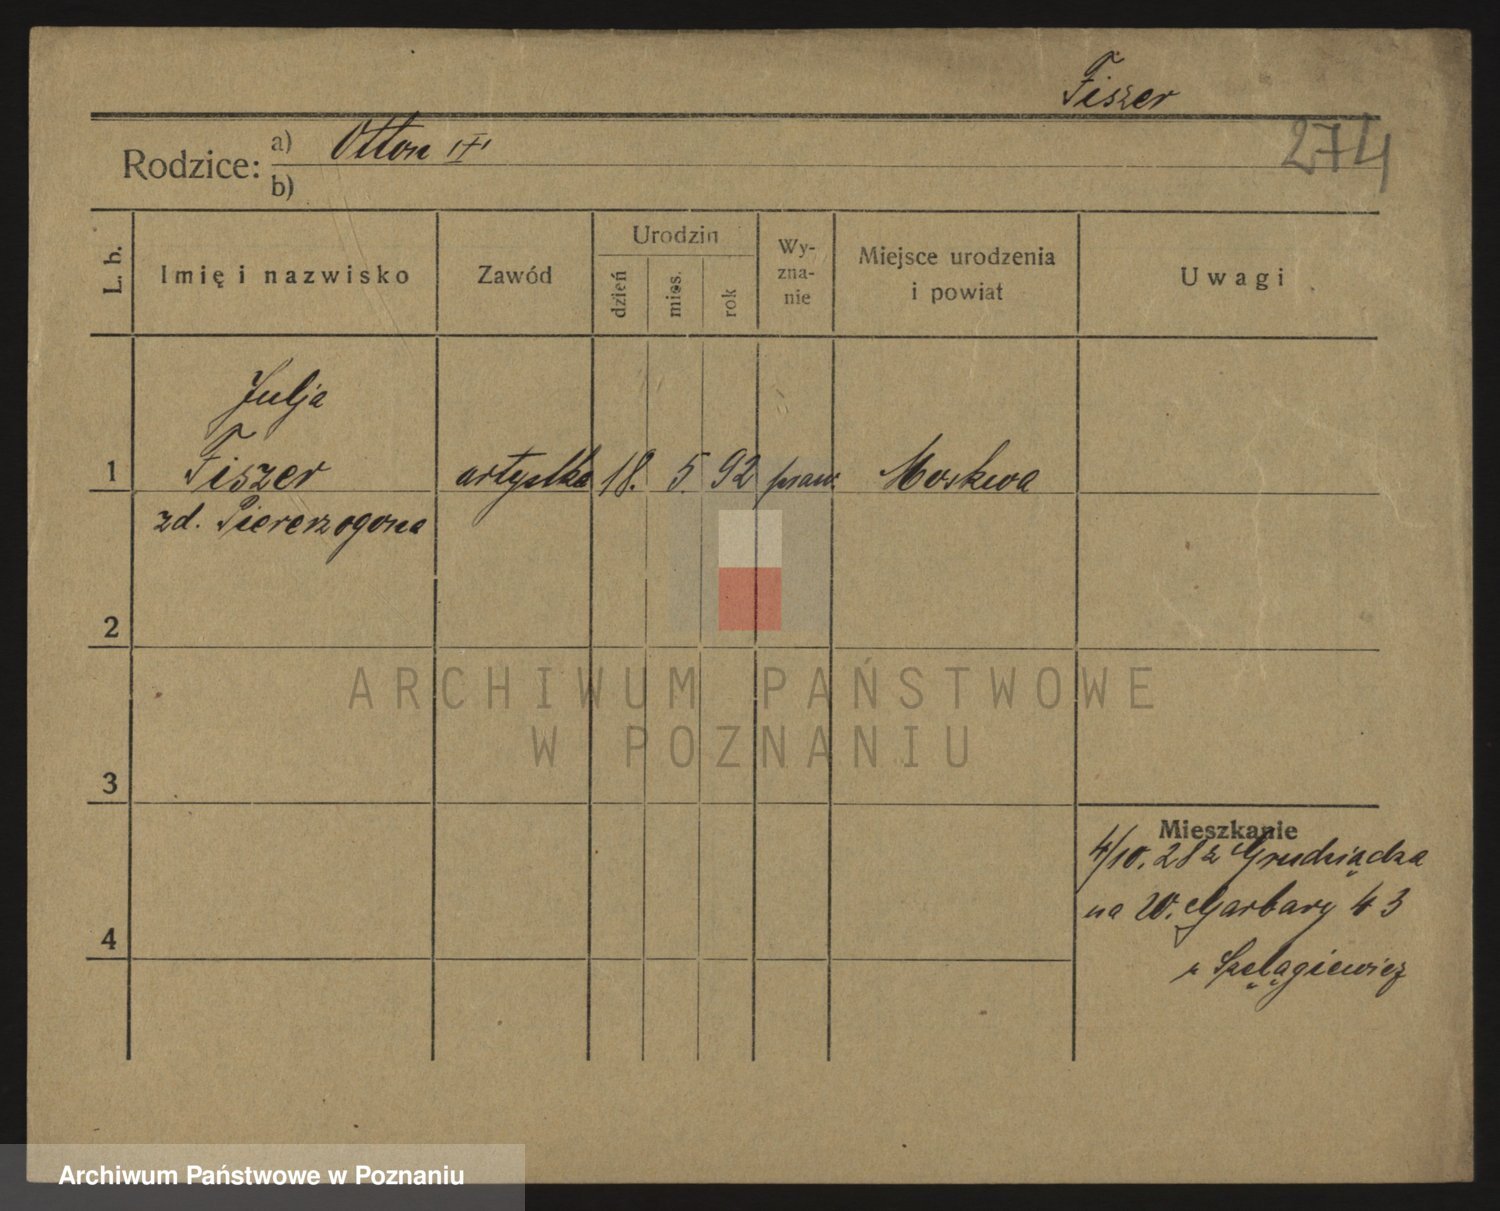 Fiszer
274
Rodzice: a) Otton
b)
L. b. Imię i nazwisko Zawód Urodzin dzień mies. rok Wyznanie Miejsce urodzenia i powiat Uwagi
Julja
1 Fiszer artystka 18. 5. 92 praw. Moskwa
zd. Pierezogona
2
3
Mieszkanie
4/10. 28 z Grudziądza
na W. Garbary 43
4
u Szelągiewicz
ARCHIWUM PAŃSTWOWE
W POZNANIU
Archiwum Państwowe w Poznaniu